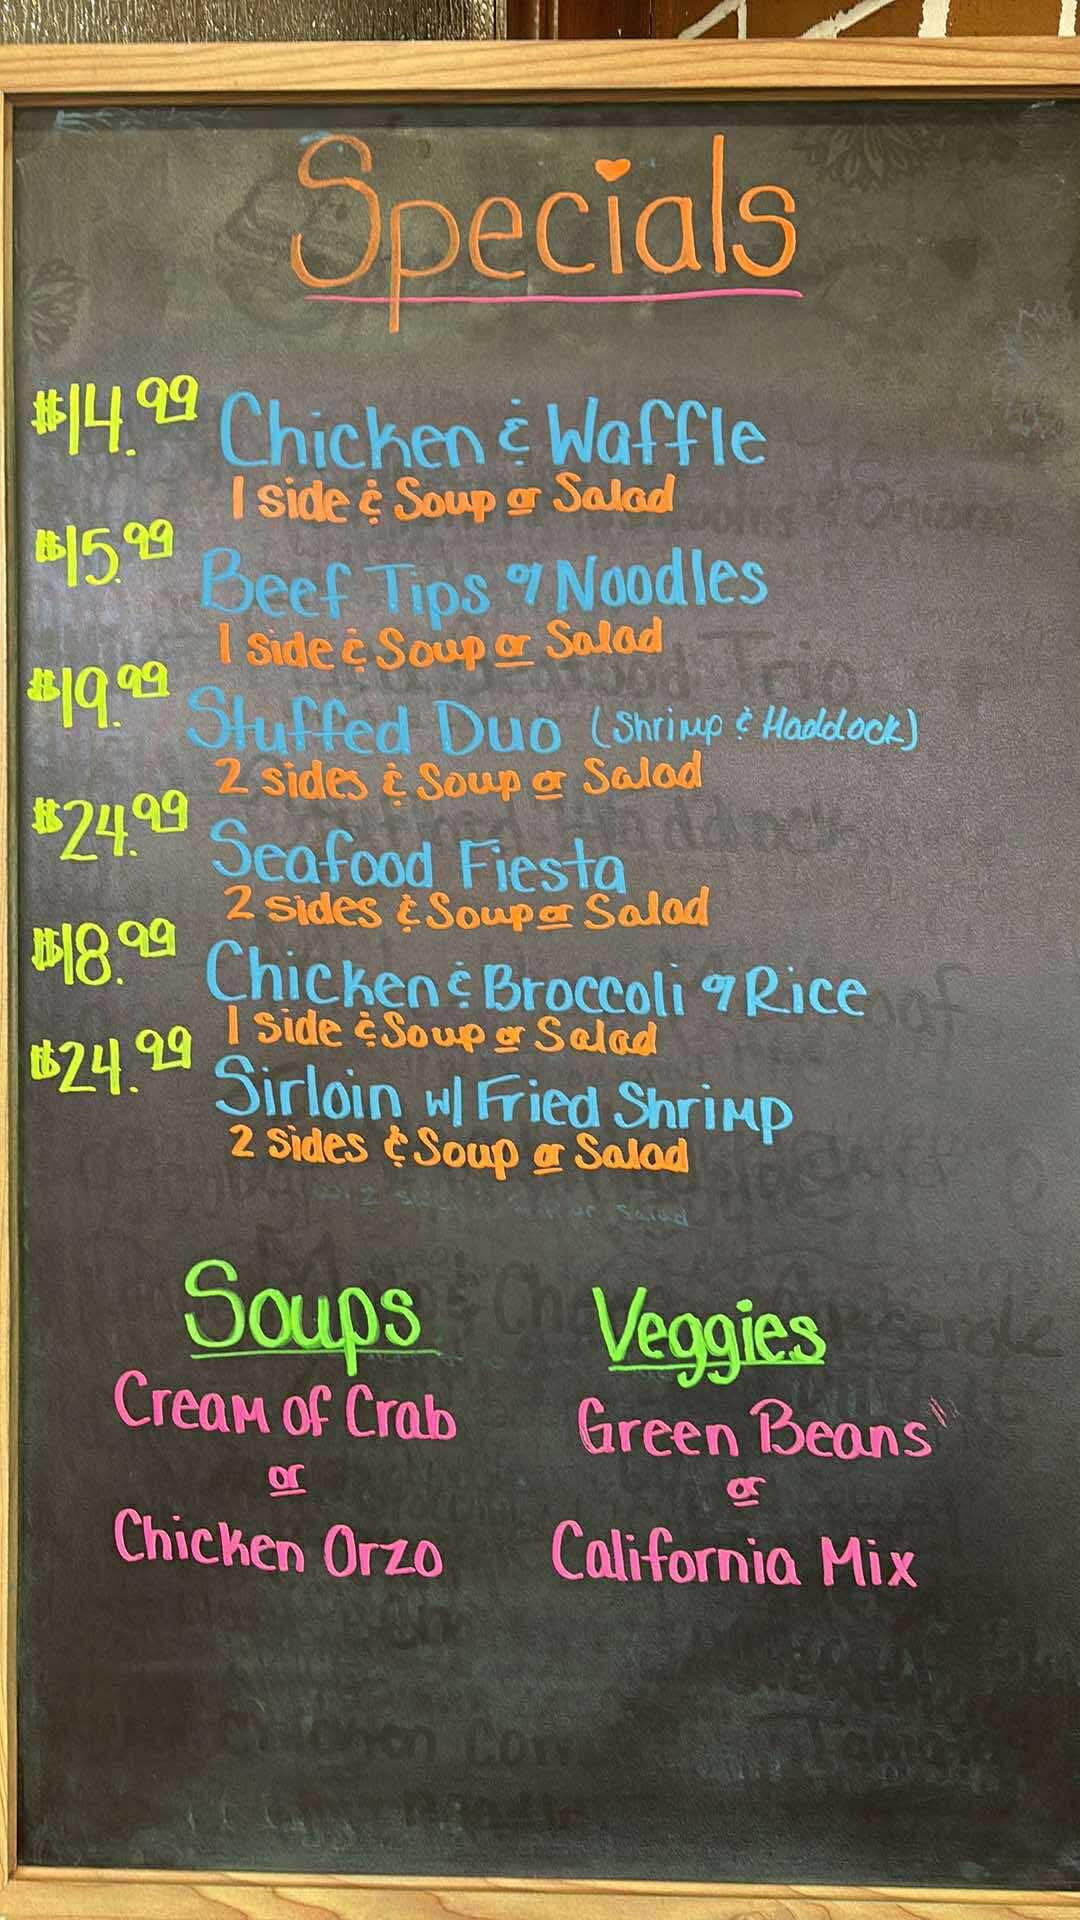 Specials
$14.99 Chicken & Waffle
1 side & Soup or Salad
$15.99 Beef Tips o/ Noodles
1 side & Soup or Salad
$19.99 Stuffed Duo (Shrimp & Haddock)
2 sides & Soup or Salad
$24.99 Seafood Fiesta
2 sides & Soup or Salad
$18.99 Chicken & Broccoli o/ Rice
1 side & Soup or Salad
$24.99 Sirloin w/ Fried Shrimp
2 sides & Soup or Salad
Soups
Cream of Crab
or
Chicken Orzo
Veggies
Green Beans
or
California Mix